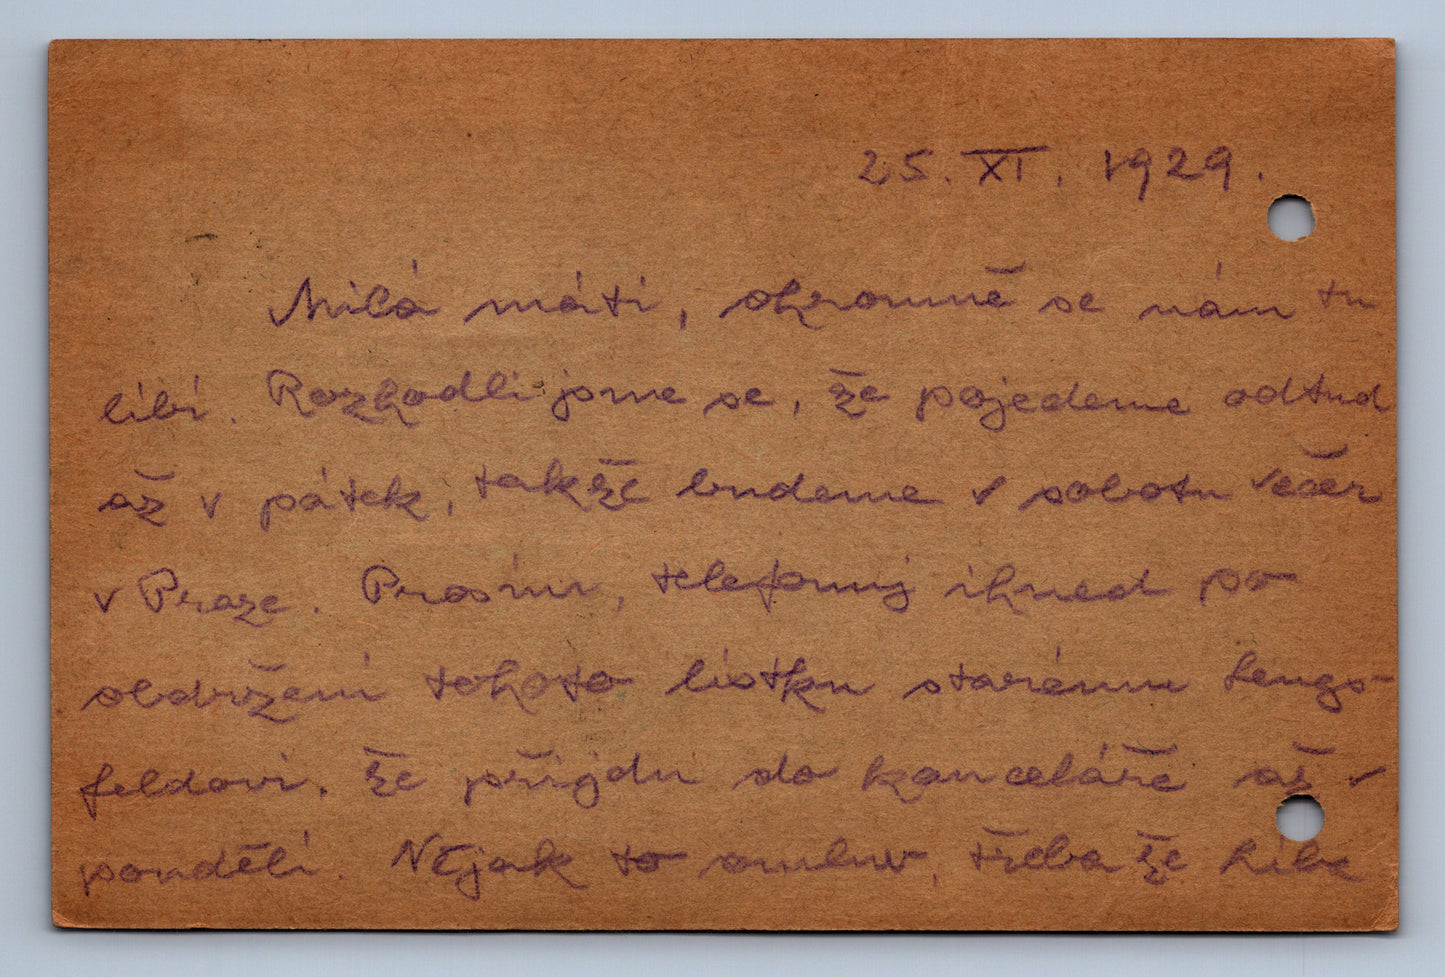 25. XI. 1929.
Milá máti, ohromně se nám tu
líbí. Rozhodli jsme se, že pojedeme odtud
až v pátek, takže budeme v sobotu večer
v Praze. Prosím, telefonuj ihned po
obdržení tohoto lístku starému Lengs-
feldovi, že přijdu do kanceláře až v
pondělí. Nějak to omluv, třeba že